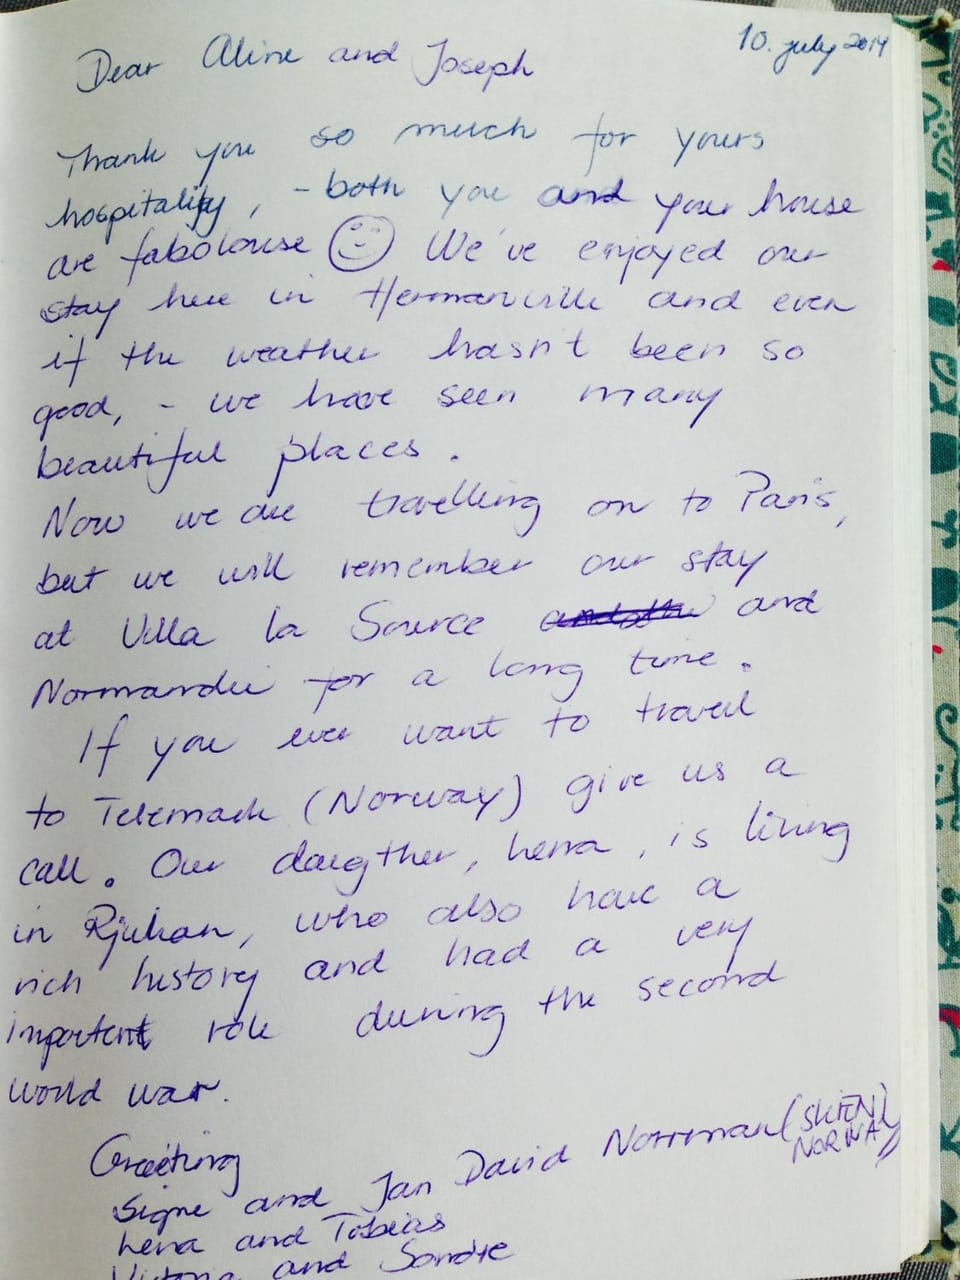 10. july 2014
Dear Aline and Joseph
Thank you so much for yours
hospitality, - both you and your house
are fabolouse ☺ We've enjoyed our
stay here in Hermanville and even
if the weather hasn't been so
good, - we have seen many
beautiful places.
Now we are travelling on to Paris,
but we will remember our stay
at Villa la Source and
Normandie for a long time.
If you ever want to travel
to Telemark (Norway) give us a
call. Our daugther, Lena, is living
in Rjukan, who also have a
rich history and had a very
important role during the second
world war.
Greeting
Signe and Jan David Norrman (SKIEN
NORWAY)
Lena and Tobias
Victoria and Sondre